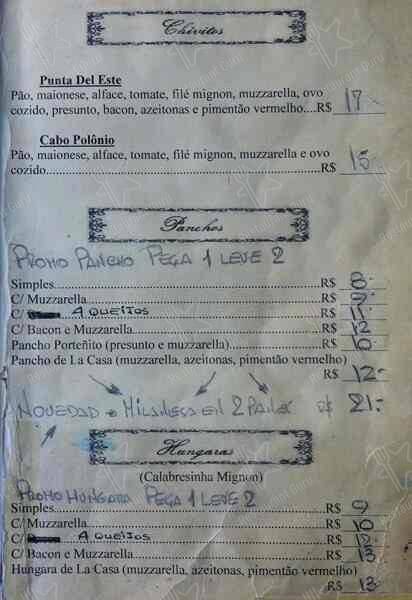 Chivitos
Punta Del Este
Pão, maionese, alface, tomate, filé mignon, muzzarella, ovo
cozido, presunto, bacon, azeitonas e pimentão vermelho....R$ 17.-
Cabo Polônio
Pão, maionese, alface, tomate, filé mignon, muzzarella e ovo
cozido..........R$ 15
Panchos
PROMO PANCHO PEGA 1 LEVE 2
Simples..........R$ 8.-
C/ Muzzarella..........R$ 9.-
C/ 4 QUEIJOS..........R$ 11.-
C/ Bacon e Muzzarella..........R$ 12
Pancho Porteñito (presunto e muzzarella)..........R$ 10.-
Pancho de La Casa (muzzarella, azeitonas, pimentão vermelho)
R$ 12.-
NOVEDAD MILANESA EN 2 R$ 21.-
Hungaras
(Calabresinha Mignon)
PROMO HUNGARA PEGA 1 LEVE 2
Simples..........R$ 9
C/ Muzzarella..........R$ 10
C/ 4 QUEIJOS..........R$ 12.-
C/ Bacon e Muzzarella..........R$ 13
Hungara de La Casa (muzzarella, azeitonas, pimentão vermelho)
R$ 13.-